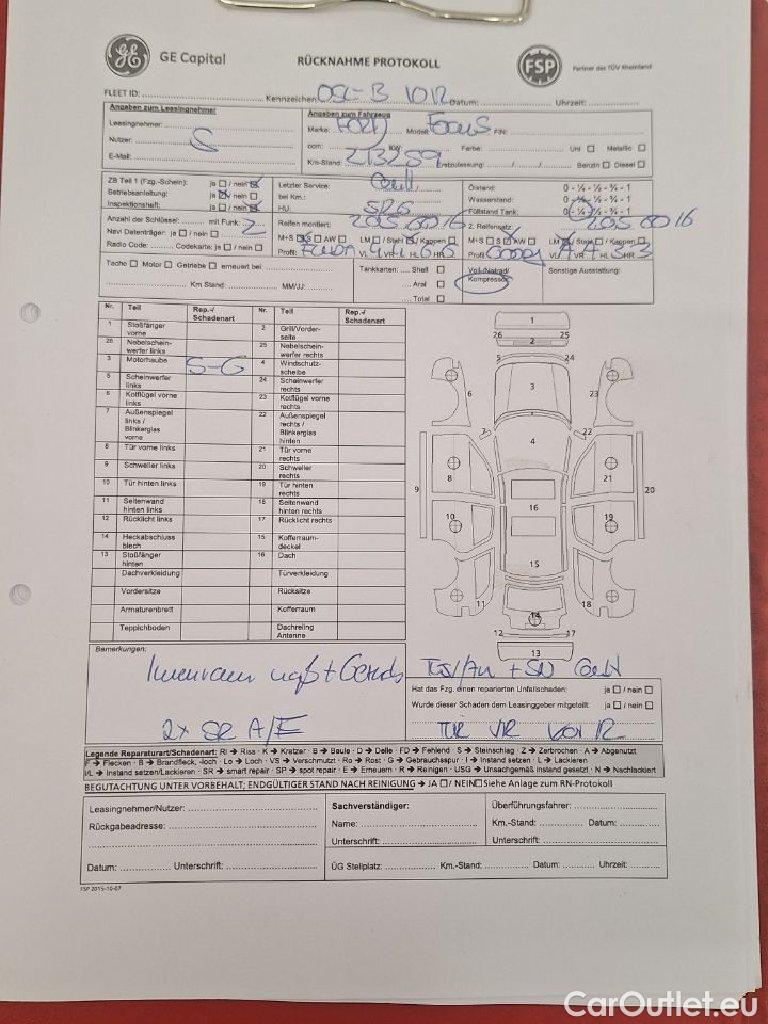 GE Capital RÜCKNAHME PROTOKOLL FSP Partner des TÜV Rheinland
FLEET ID: Kennzeichen: OSL-B 1012 Datum: Uhrzeit:
Angaben zum Leasingnehmer Angaben zum Fahrzeug
Leasingnehmer: Marke: Ford Modell: Focus FIN:
Nutzer: ccm: KW: Farbe: Uni Metallic
E-Mail: Km-Stand: 213259 Erstzulassung: Benzin Diesel
ZB Teil 1 (Fzg.-Schein): ja / nein Letzter Service: Ölstand: 0 - ¼ - ½ - ¾ - 1
Betriebsanleitung: ja / nein bei Km.: Wasserstand: 0 - ¼ - ½ - ¾ - 1
Inspektionsheft: ja / nein HU: Füllstand Tank: 0 - ¼ - ½ - ¾ - 1
Anzahl der Schlüssel: mit Funk: 2 Reifen montiert: 2. Reifensatz:
Navi Datenträger: ja / nein M+S S AW LM / Stahl / Kappen M+S S AW LM / Stahl / Kappen
Radio Code: Codekarte: ja / nein Profil: VL VR HL HR Profil: VL VR HL HR
Tacho Motor Getriebe erneuert bei Tankkarten: Shell Sonstige Ausstattung:
Km Stand: MM/JJ: Aral Kompressor
Total
Nr. Teil Rep.-/ Schadenart Nr. Teil Rep.-/ Schadenart
1 Stoßfänger vorne 2 Grill/Vorderseite
26 Nebelscheinwerfer links 25 Nebelscheinwerfer rechts
3 Motorhaube S-G 4 Windschutzscheibe
5 Scheinwerfer links 24 Scheinwerfer rechts
6 Kotflügel vorne links 23 Kotflügel vorne rechts
7 Außenspiegel links / Blinkerglas vorne 22 Außenspiegel rechts / Blinkerglas hinten
8 Tür vorne links 21 Tür vorne rechts
9 Schweller links 20 Schweller rechts
10 Tür hinten links 19 Tür hinten rechts
11 Seitenwand hinten links 18 Seitenwand hinten rechts
12 Rücklicht links 17 Rücklicht rechts
14 Heckabschlussblech 15 Kofferraumdeckel
13 Stoßfänger hinten 16 Dach
Dachverkleidung Türverkleidung
Vordersitze Rücksitze
Armaturenbrett Kofferraum
Teppichboden Dachreling Antenne
1
26 25
2
5 24
3
6 23
7 22
4
8 21
9 20
16
10 19
15
11 18
14
12 17
13
Bemerkungen: Innenraum naß +
Hat das Fzg. einen reparierten Unfallschaden: ja / nein
Wurde dieser Schaden dem Leasinggeber mitgeteilt: ja / nein
2x SR A/E TÜR VR
Legende Reparaturart/Schadenart: RI → Riss - K → Kratzer - B → Beule - D → Delle - FD → Fehlend - S → Steinschlag - Z → Zerbrochen - A → Abgenutzt
F → Flecken - B → Brandfleck, -loch - Lo → Loch - VS → Verschmutzt - Ro → Rost - G → Gebrauchsspur - I → Instand setzen - L → Lackieren
I/L → Instand setzen/Lackieren - SR → smart repair - SP → spot repair - E → Erneuern - R → Reinigen - USG → Unsachgemäß instand gesetzt - N → Nachlackiert
BEGUTACHTUNG UNTER VORBEHALT; ENDGÜLTIGER STAND NACH REINIGUNG → JA / NEIN Siehe Anlage zum RN-Protokoll
Leasingnehmer/Nutzer: Sachverständiger: Überführungsfahrer:
Rückgabeadresse: Name: Km.-Stand: Datum:
Unterschrift: Unterschrift:
Datum: Unterschrift: ÜG Stellplatz: Km.-Stand: Datum: Uhrzeit:
FSP 2015-10-07
CarOutlet.eu